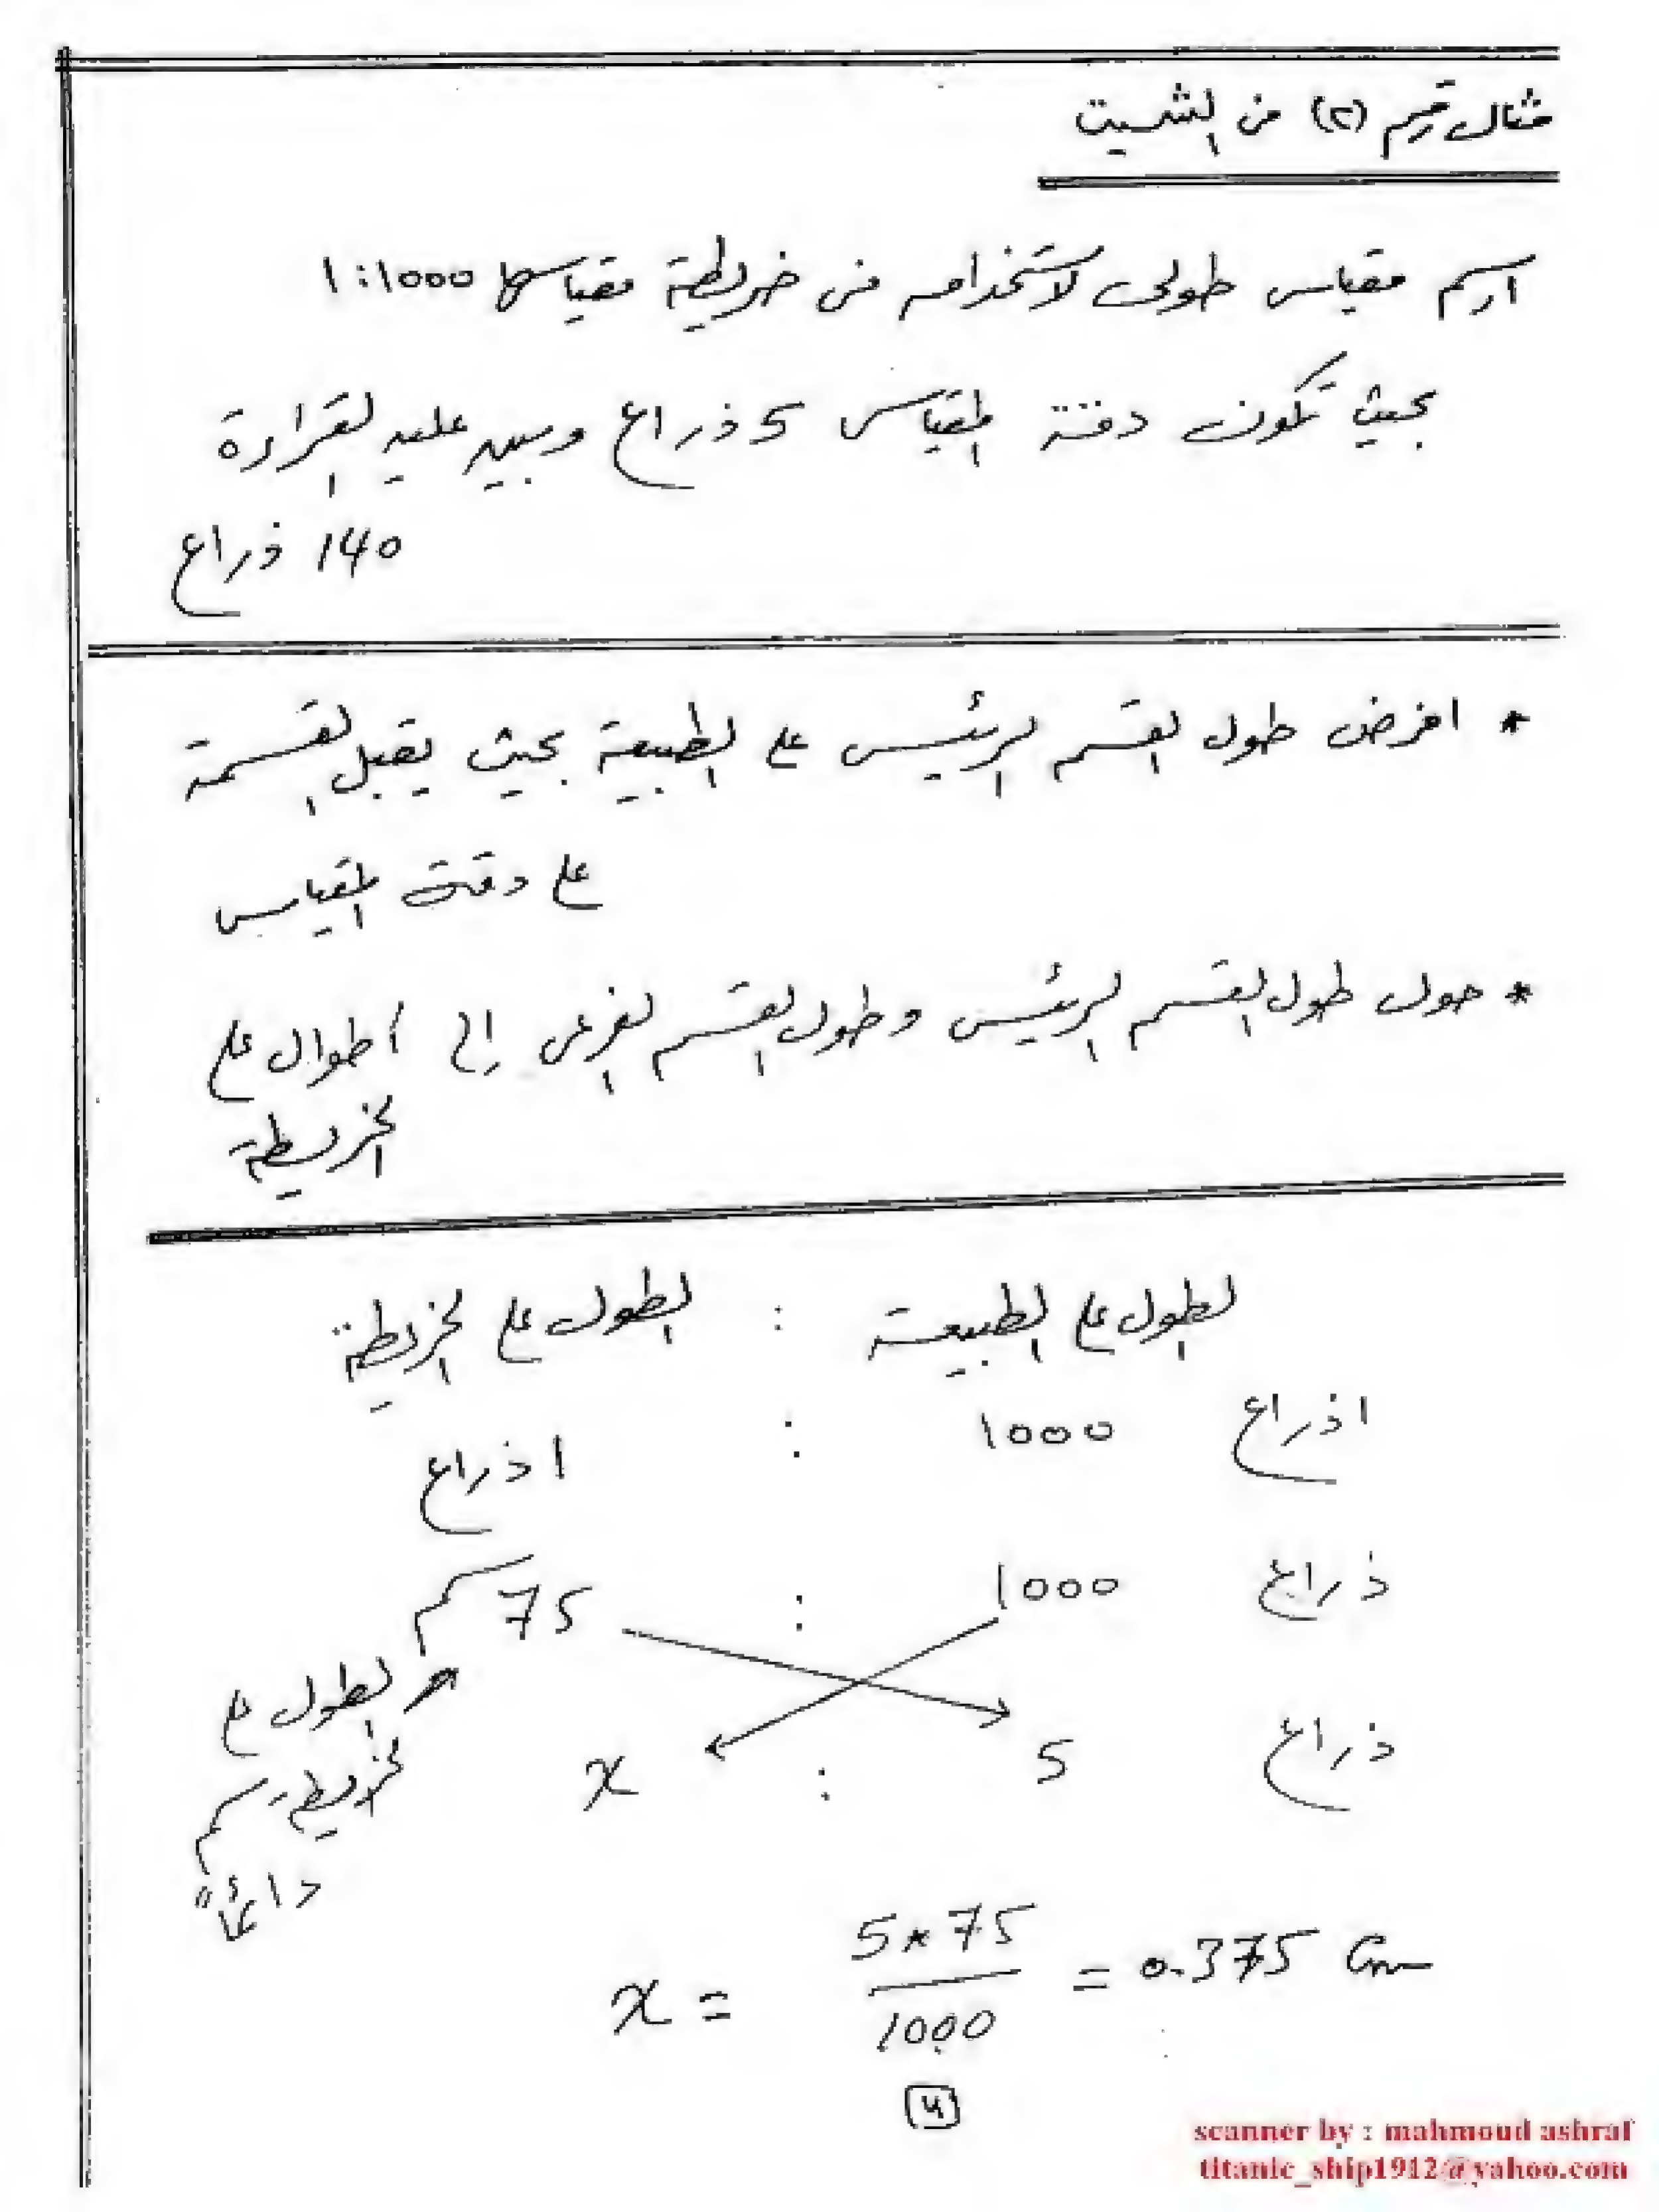 مثال رقم (٢) من الشيت
ارسم مقياس طولى لاستخدامه فى خريطة مقياسها 1:1000
بحيث تكون دقة المقياس 5 ذراع وبين عليه القراءة
140 ذراع
* افرض طول القسم الرئيسى على الطبيعة بحيث يقبل القسمة
على دقة المقياس
* حول طول القسم الرئيسى وطول القسم الفرعى إلى أطوال على
الخريطة
الطول على الطبيعة : الطول على الخريطة
1 ذراع 1000 : 1 ذراع
ذراع 1000 : 75 سم
الطول على
الخريطة سم
دائماً
ذراع 5 : x
x = 5*75 / 1000 = 0.375 Cm
4
scanner by : mahmoud ashraf
titanic_ship1912@yahoo.com